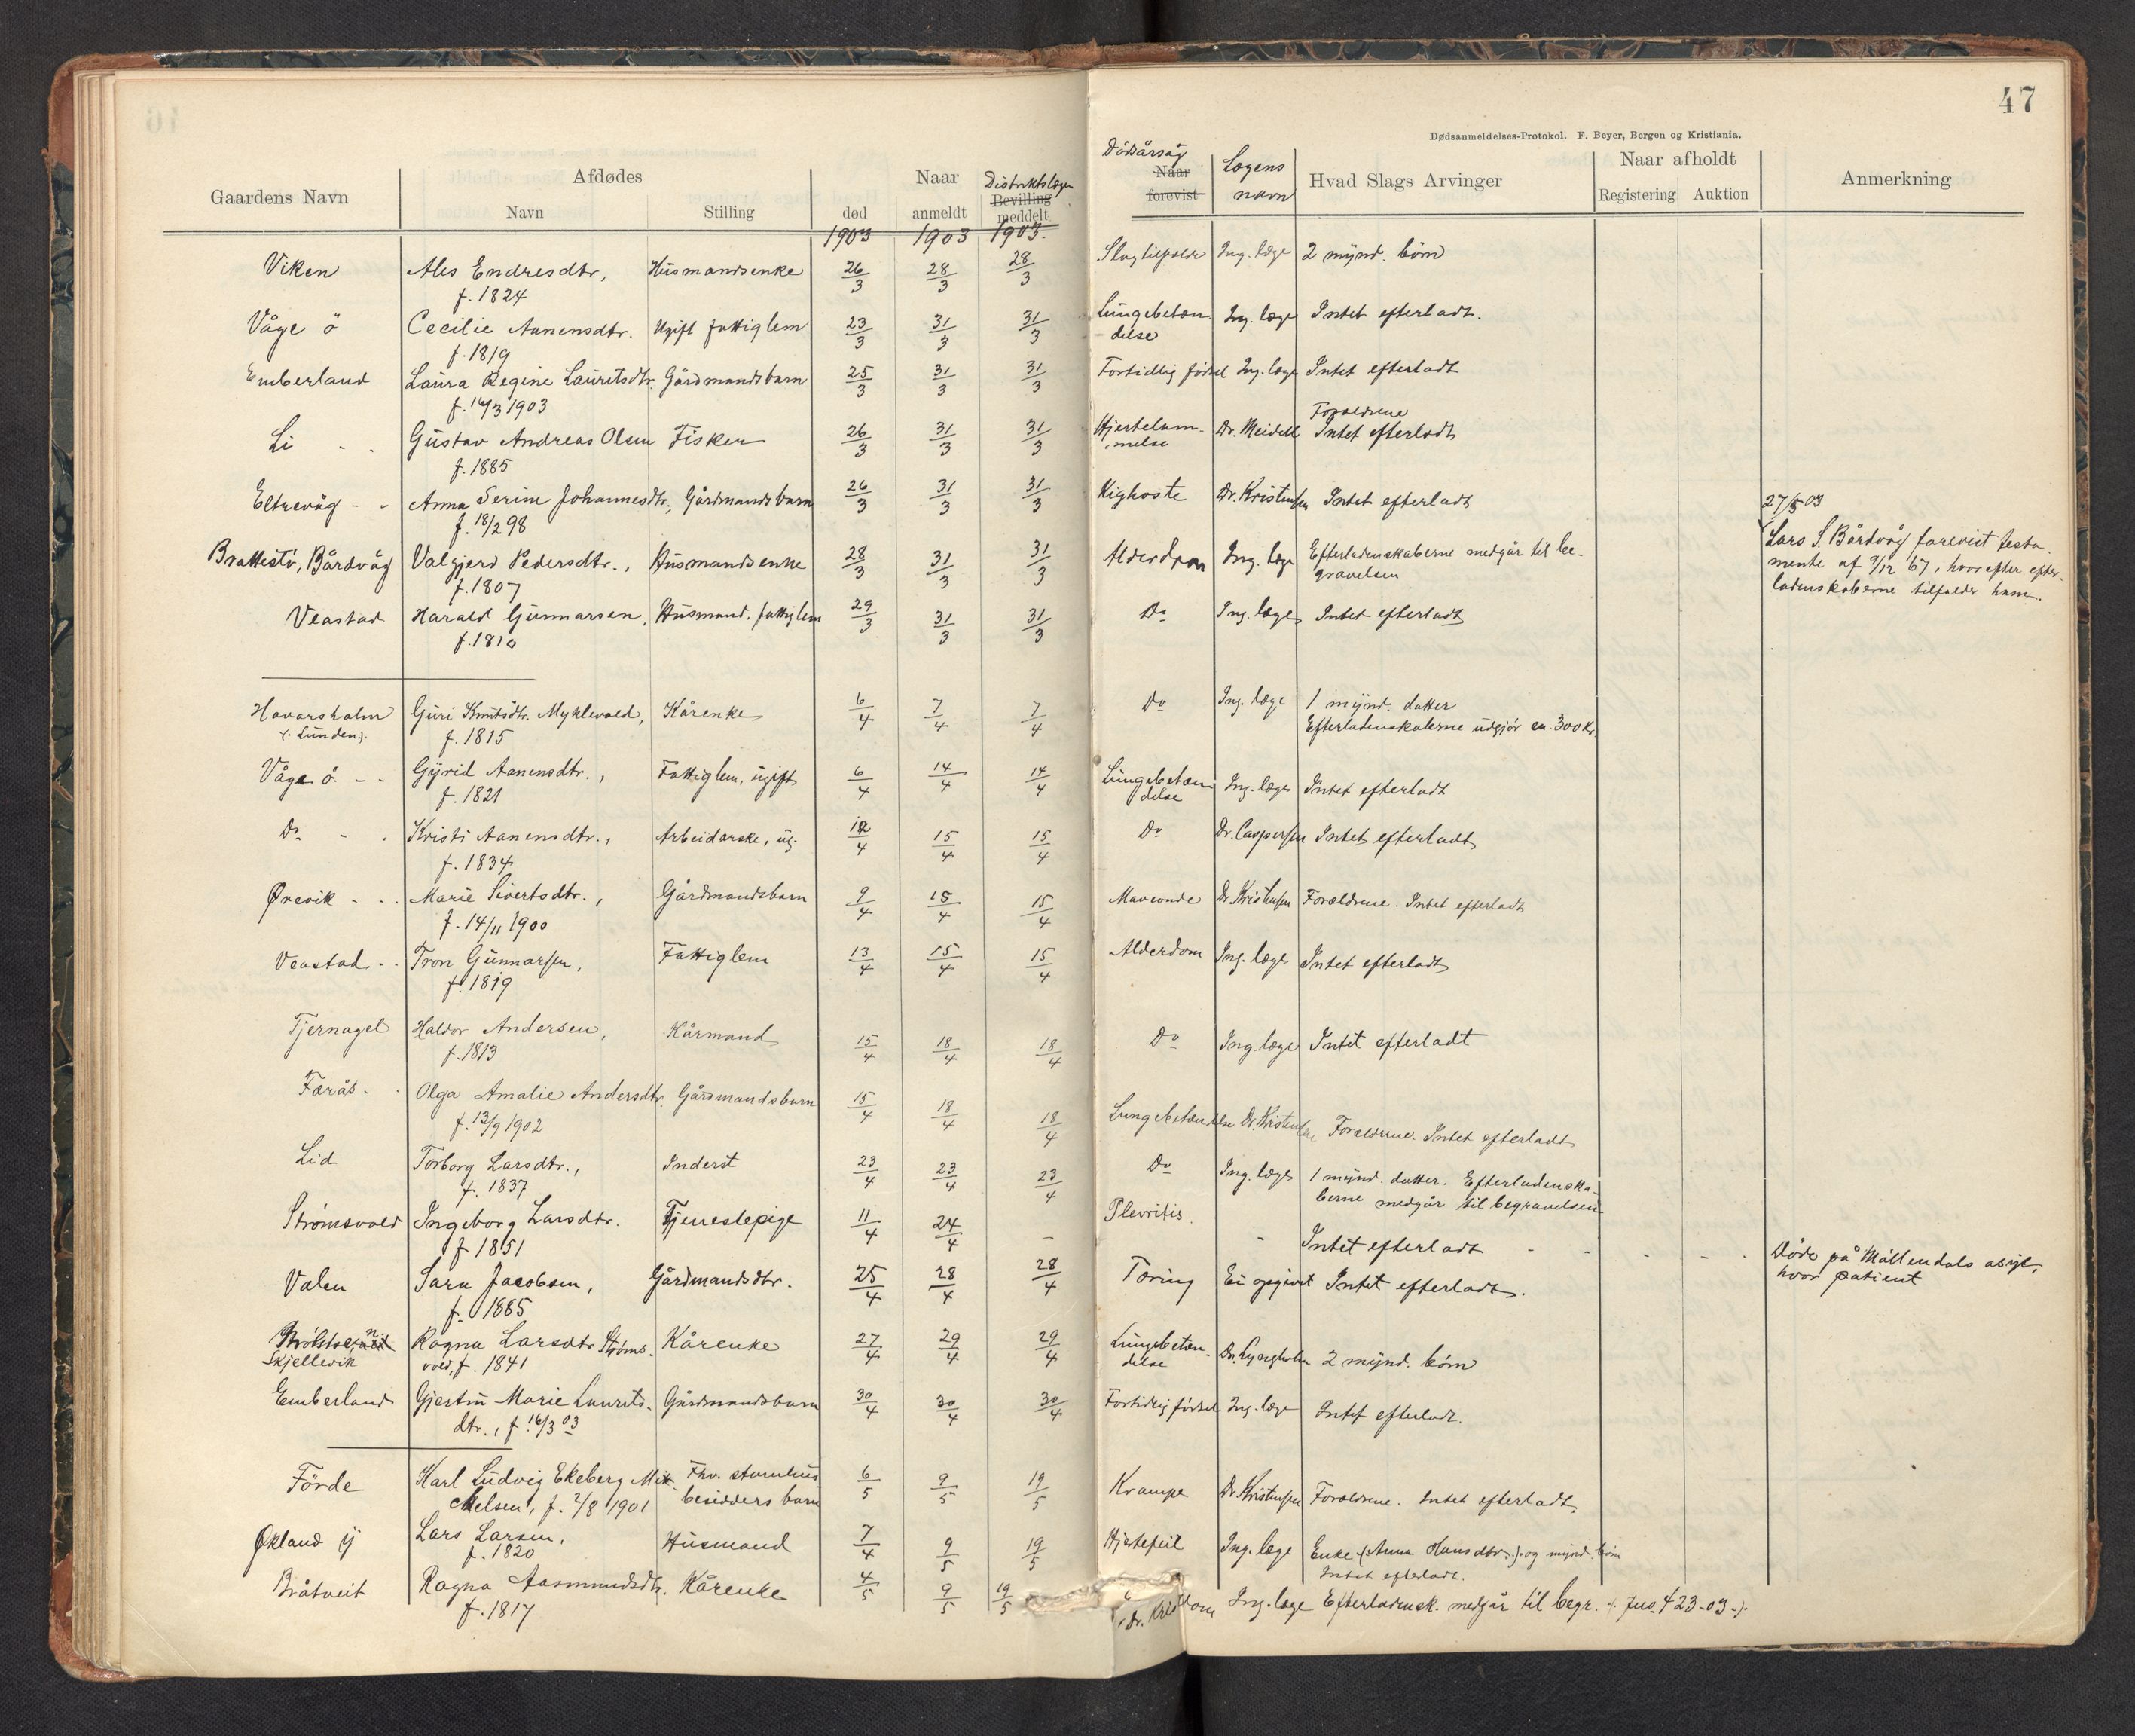 47
Dødsanmeldelses-Protokol. F. Beyer, Bergen og Kristiania.
Gaardens Navn | Afdødes | Naar | Distriktslægen | Dödsårsag | Lægens navn | Hvad Slags Arvinger | Naar afholdt | Anmerkning
Navn | Stilling | død | anmeldt | Bevilling meddelt | Naar forevist | Registering | Auktion
1903 | 1903 | 1903.
Viken | Ales Endresdtr, | Husmandsenke | 26/3 | 28/3 | 28/3 | Slagtilfælde | Ing. læge | 2 mynd. börn
f. 1824
Våge ö | Cecilie Aanensdtr. | Ugift fattiglem | 23/3 | 31/3 | 31/3 | Lungebetæn | Ing. læge | Intet efterladt.
f. 1819 | delse
Emberland | Laura Regine Lauritsdtr. | Gårdmandsbarn | 25/3 | 31/3 | 31/3 | Fortidlig födsel | Ing. læge | Intet efterladt
f. 16/3 1903
Forældrene
Li | Gustav Andreas Olsen | Fisker | 26/3 | 31/3 | 31/3 | Hjertelam- | Dr. Meidell | Intet efterladt
f. 1885 | melse
Eltrevåg | Anna Serine Johannesdtr., | Gårdmandsbarn | 26/3 | 31/3 | 31/3 | Kighoste | Dr. Kristensen | Intet efterladt | 27/5 03
f. 18/2 98 | Lars S. Bårdvåg forevist testa-
Brattestö, Bårdvåg | Valgjerd Pedersdtr., | Husmandsenke | 28/3 | 31/3 | 31/3 | Alderdom | Ing. læge | Efterladenskaberne medgår til be- | mente af 9/12 67, hvorefter efter-
f. 1807 | gravelsen | ladenskaberne tilfalder ham.
Veastad | Harald Gunnarsen, | Husmand. fattiglem | 29/3 | 31/3 | 31/3 | Do | Ing. læge | Intet efterladt
f. 1810
Havarsholm | Guri Knutsdtr. Myklevold, | Kårenke | 6/4 | 7/4 | 7/4 | Do | Ing. læge | 1 mynd. datter
(: Lunden:). | f. 1815 | Efterladenskaberne udgjör ca. 300 Kr.
Våge ö | Gyrid Aanensdtr., | Fattiglem, ugift | 6/4 | 14/4 | 14/4 | Lungebetæn | Ing. læge | Intet efterladt
f. 1821 | delse
Do | Kristi Aanensdtr., | Arbeiderske, ug. | 12/4 | 15/4 | 15/4 | Do | Dr. Caspersen | Intet efterladt
f. 1834
Ørevik | Marie Sivertsdtr., | Gårdmandsbarn | 9/4 | 15/4 | 15/4 | Maveonde | Dr. Kristensen | Forældrene. Intet efterladt
f. 14/11 1900
Veastad | Tron Gunnarsen, | Fattiglem | 13/4 | 15/4 | 15/4 | Alderdom | Ing. læge | Intet efterladt
f. 1819
Tjernagel | Haldor Andersen, | Kårmand | 15/4 | 18/4 | 18/4 | Do | Ing. læge | Intet efterladt
f. 1813
Færås | Olga Amalie Andersdtr. | Gårdmandsbarn | 15/4 | 18/4 | 18/4 | Lungebetændelse | Dr. Kristensen | Forældrene. Intet efterladt
f. 13/9 1902
Lid | Torborg Larsdtr., | Inderst | 23/4 | 23/4 | 23/4 | Do | Ing. læge | 1 mynd. datter. Efterladenska-
f. 1837 | berne medgår til begravelsen
Strömsvold | Ingeborg Larsdtr. | Tjenestepige | 11/4 | 24/4 | - | Plevritis. | - | Intet efterladt | Döde på Möllendals asyl,
f. 1851 | hvor patient
Valen | Sara Jacobsen, | Gårdmandsdtr. | 25/4 | 28/4 | 28/4 | Tæring | Ei opgivet | Intet efterladt.
f. 1885
Ragna Larsdtr Ströms- | Kårenke | 27/4 | 29/4 | 29/4 | Lungebetæn- | Dr. Lyngholm | 2 mynd. börn
Skjellevik | vold, f. 1841 | delse
Emberland | Gjertin Marie Laurits- | Gårdmandsbarn | 30/4 | 30/4 | 30/4 | Fortidlig födsel | Ing. læge | Intet efterladt.
dtr., f. 16/3 03
Förde | Karl Ludvig Ekeberg Mik- | Fhv. stuenhus | 6/5 | 9/5 | 19/5 | Krampe | Dr. Kristensen | Forældrene. Intet efterladt.
kelsen, f. 2/8 1901 | besidders barn
Økland y | Lars Larsen, | Husmand | 7/4 | 9/5 | 19/5 | Hjertefeil | Ing. læge | Enke (Anna Hansdtr.:) og mynd. börn
f. 1820 | Intet efterladt.
Bråtveit | Ragna Aasmundsdtr. | Kårenke | 4/5 | 9/5 | 19/5 | Ing. læge | Efterladensk. medgår til begr. (: Jus. 423-03-:).
f. 1817